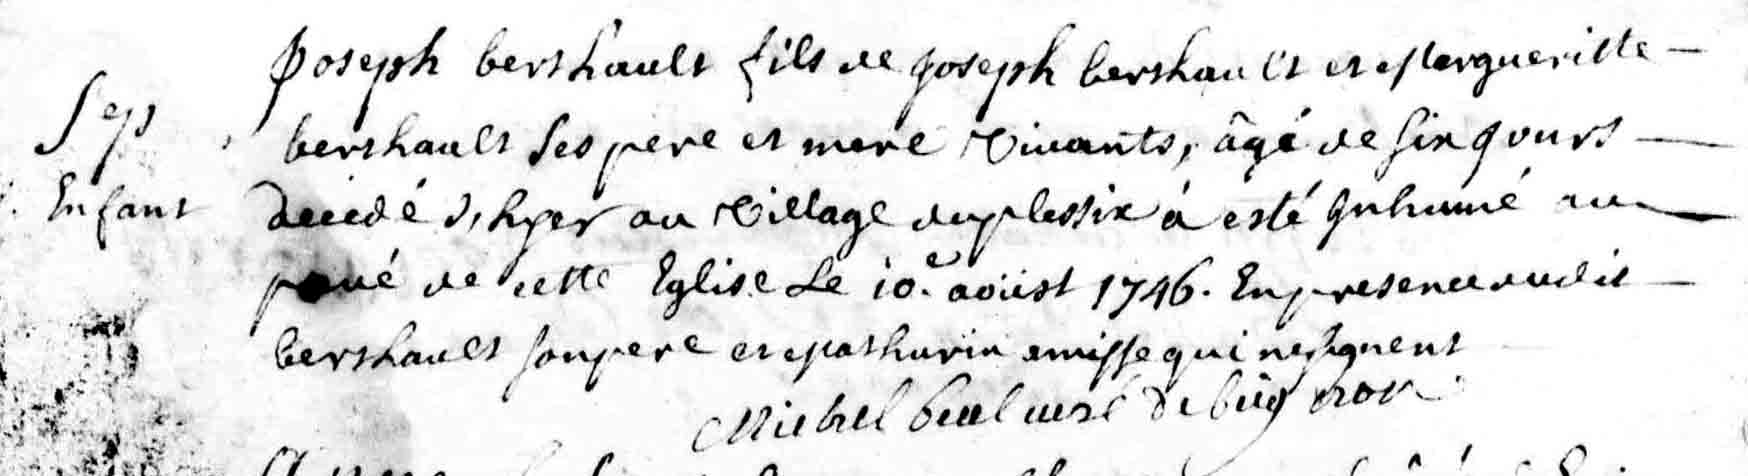 Joseph berthault fils de Joseph berthault et Margueritte
Sep
berthault Ses pere et mere Vivants, âgé de Six Jours
Enfant
Decedé d'hyer au Village duplessix à esté Inhumé au
pavé de cette Eglise Le 10.e aoüst 1746. En presence dudit
berthault Son pere et Mathurin qui ne Signent
Michel